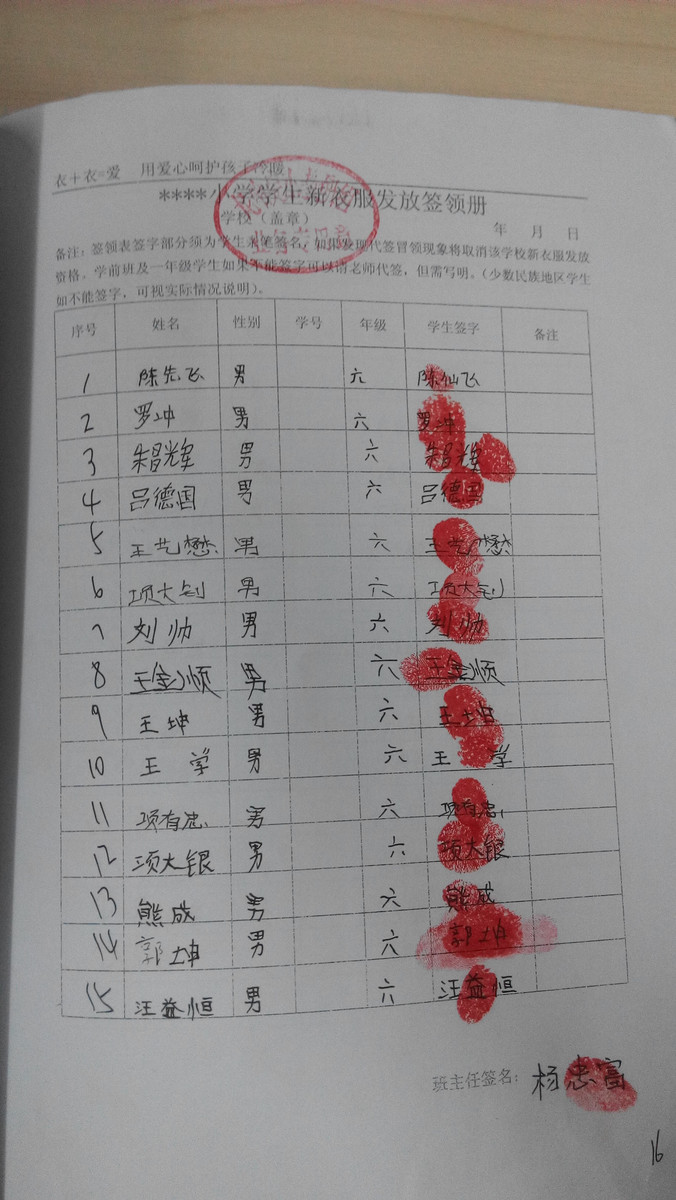 衣+衣=爱 用爱心呵护孩子冷暖
****小学学生新衣服发放签领册
学校(盖章) 年 月 日
备注:签领表签字部分须为学生亲笔签名,如果发现代签冒领现象将取消该学校新衣服发放
资格。学前班及一年级学生如果不能签字可以请老师代签,但需写明。(少数民族地区学生
如不能签字,可视实际情况说明)。
序号 姓名 性别 学号 年级 学生签字 备注
1 陈先飞 男 六 陈仙飞
2 罗冲 男 六 罗冲
3 朱昌辉 男 六 朱昌辉
4 吕德国 男 六 吕德国
5 王艺懋 男 六 王艺懋
6 项大钊 男 六 项大钊
7 刘帅 男 六 刘帅
8 王金顺 男 六 王金顺
9 王坤 男 六 王坤
10 王学 男 六 王学
11 项有忠 男 六 项有忠
12 项大银 男 六 项大银
13 熊成 男 六 熊成
14 郭坤 男 六 郭坤
15 汪益恒 男 六 汪益恒
班主任签名: 杨忠富
16